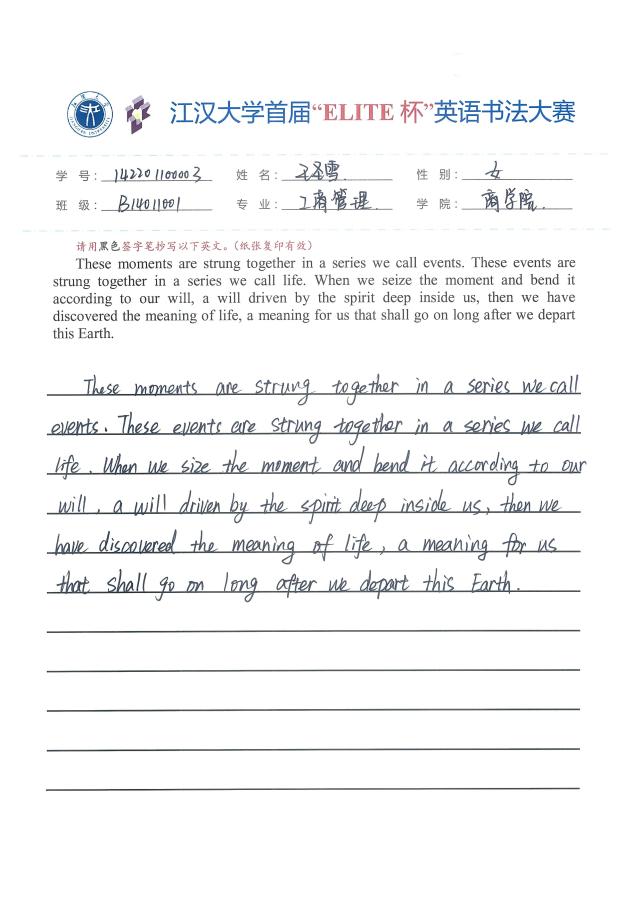 江汉大学首届“ELITE 杯”英语书法大赛
学 号: 142201100003 姓 名: 王圣雪 性 别: 女
班 级: B14011001 专 业: 工商管理 学 院: 商学院
请用黑色签字笔抄写以下英文。(纸张复印有效)
These moments are strung together in a series we call events. These events are
strung together in a series we call life. When we seize the moment and bend it
according to our will, a will driven by the spirit deep inside us, then we have
discovered the meaning of life, a meaning for us that shall go on long after we depart
this Earth.
These moments are strung together in a series we call
events. These events are strung together in a series we call
life. When we size the moment and bend it according to our
will, a will driven by the spirit deep inside us, then we
have discovered the meaning of life, a meaning for us
that shall go on long after we depart this Earth.